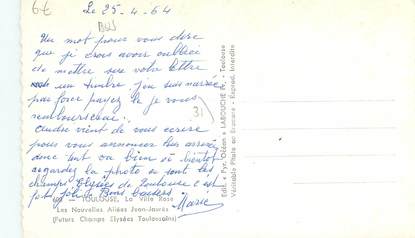 6€
Le 25-4-64
Un mot pour vous dire
que je crois avoir oublié
de mettre sur votre lettre
un timbre j'en suis navrée
pas payez la je vous
rembourserai.
vient de vous écrire
pour vous annoncer leur arrivée
donc tout va bien à bientôt
regardez la photo ce sont les
champs Elysées de Toulouse c'est
joli Bons baisers
Marie
31
- TOULOUSE, La Ville Rose
Les Nouvelles Allées Jean-Jaurès
(Futurs Champs Elysées Toulousains)
Edit. « Pyr. Océan » LABOUCHE Fr. - Toulouse
Véritable Photo au Bromure - Reprod. Interdite